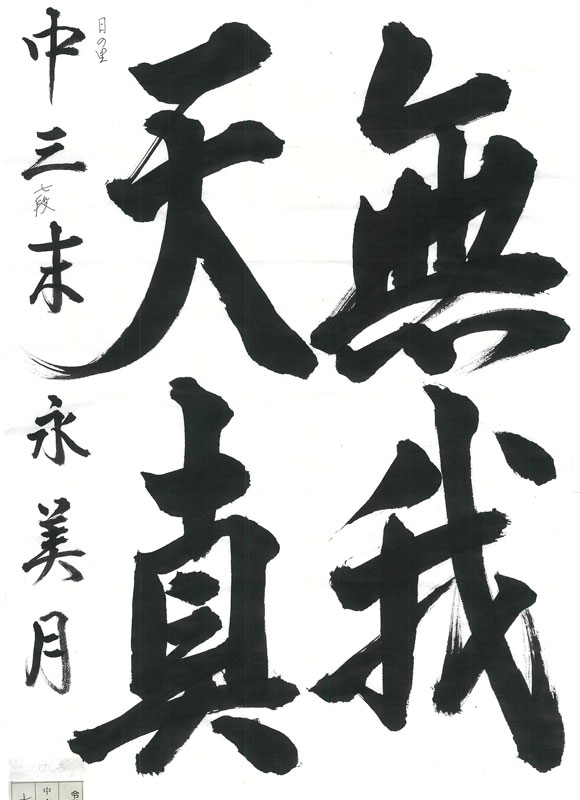 無我
天真
日の里
中三 末永美月
七段
中
令